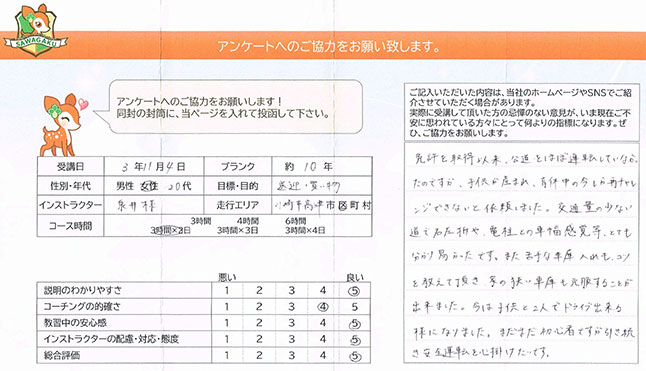 SAWAGAKU
アンケートへのご協力をお願い致します。
アンケートへのご協力をお願いします！
同封の封筒に、当ページを入れて投函して下さい。
受講日 3年11月4日 ブランク 約10年
性別・年代 男性 女性 20代 目標・目的 送迎・買い物
インストラクター 糸井様 走行エリア 川崎市高津市区町村
コース時間 3時間 4時間 6時間
3時間×2日 3時間×3日 3時間×4日
悪い 良い
説明のわかりやすさ 1 2 3 4 5
コーチングの的確さ 1 2 3 4 5
教習中の安心感 1 2 3 4 5
インストラクターの配慮・対応・態度 1 2 3 4 5
総合評価 1 2 3 4 5
ご記入いただいた内容は、当社のホームページやSNSでご紹
介させていただく場合があります。
実際に受講して頂いた方の忌憚のない意見が、いま現在ご不
安に思われている方々にとって何よりの指標になります。ぜ
ひ、ご協力をお願いします。
免許を取得以来、公道をほぼ運転していなかっ
たのですが、子供が産まれ、育休中の今しか再チャレ
ンジできないと依頼しました。交通量の少ない
道で右左折や、電柱との車幅感覚等、とても
分かり易かったです。また苦手な車庫入れも、コツ
を教えて頂き、家の狭い車庫も克服することが
出来ました。今は子供と2人でドライブ出来る
様になりました。まだまだ初心者ですが引き続
き安全運転を心掛けたいです。